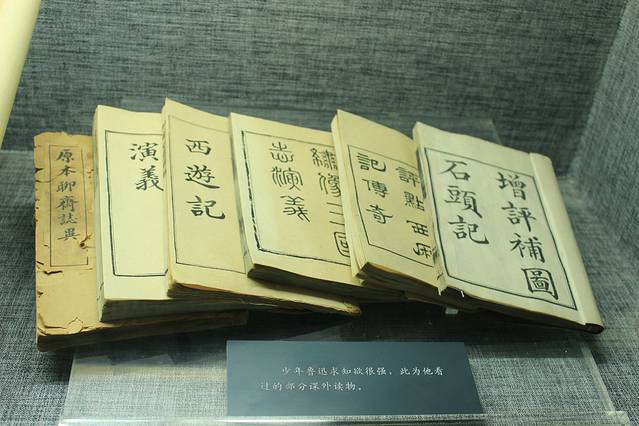 原本聊齋誌異
演義
西遊記
繡像三國
志演義
評點西廂
記傳奇
增評補圖
石頭記
少年鲁迅求知欲很强，此为他看
过的部分课外读物。